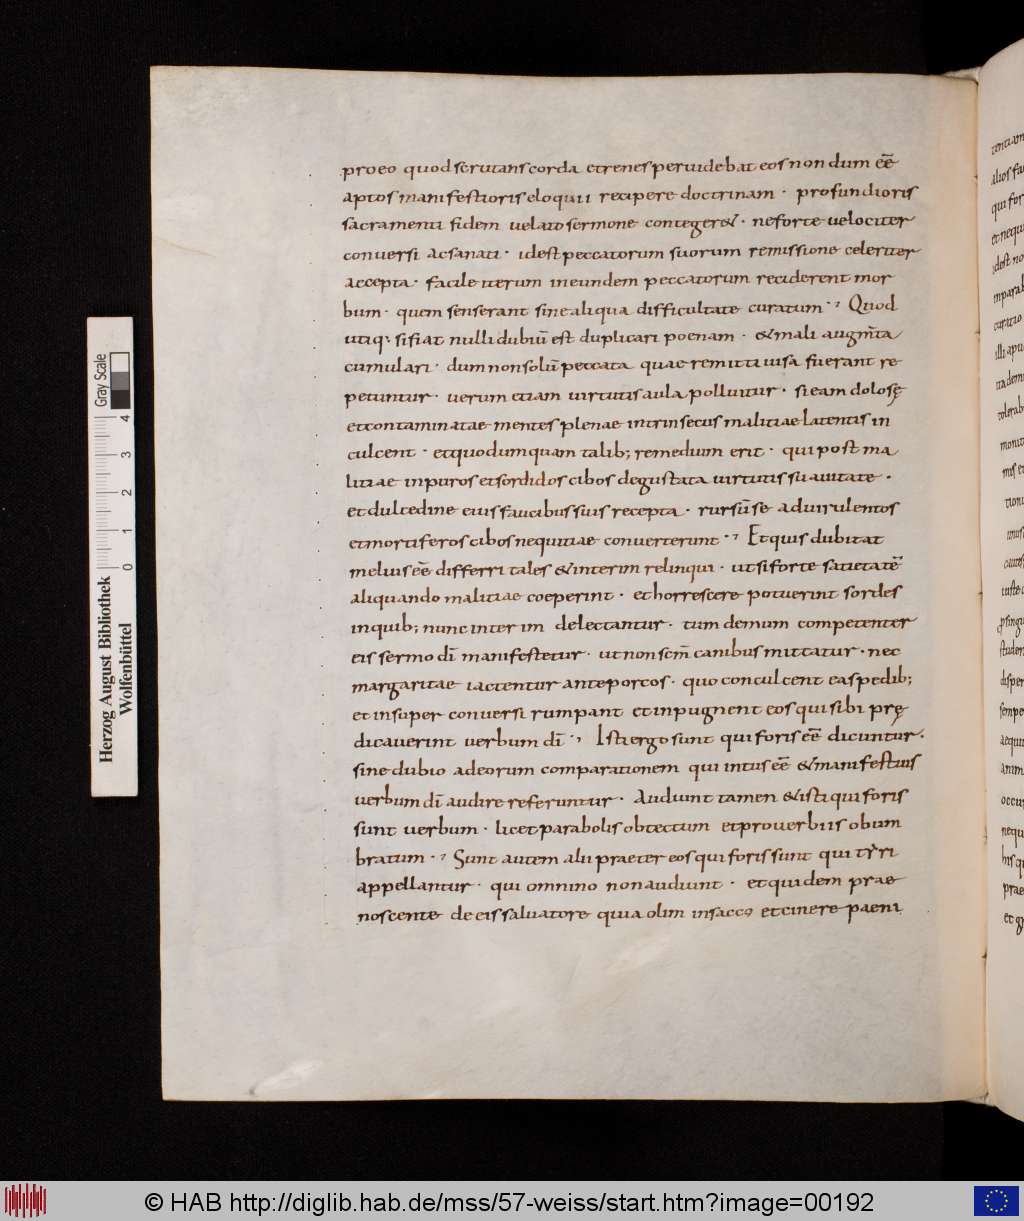 proeo quod scrutans corda et renes pervidebat eos nondum eē
aptos manifestioris eloquii recipere doctrinam · profundioris
sacramenti fidem velato sermone conteger& · ne forte velociter
conversi ac sanati · id est peccatorum suorum remissione celeriter
accepta · facile iterum in eundem peccatorum reciderent mor
bum · quem senserant sine aliqua difficultate curatum ·, Quod
utiq· si fiat nulli dubiū est duplicari poenam · & mali augm̄ta
cumulari · dum non solū peccata quae remitti visa fuerant re
petuntur · verum etiam virtutis aula polluitur · si eam dolosę
et contaminatae mentes plenae intrinsecus malitiae latentis in
culcent · et quod umquam talib; remedium erit · qui post ma
litiae inpuros et sordidos cibos degustata virtutis suavitate ·
et dulcedine eius faucibus suis recepta · rursū se ad virulentos
et mortiferos cibos nequitiae converterunt ·, Et quis dubitat
melius eē differri tales & interim relinqui · ut si forte satietatē
aliquando malitiae coeperint · et horrescere potuerint sordes
in quib; nunc interim delectantur · tum demum competenter
eis sermo dī manifestetur · ut non scm̄ canibus mittatur · nec
margaritae iactentur ante porcos · quo conculcent eas pedib;
et insuper conversi rumpant et inpugnent eos qui sibi prę
dicaverint verbum dī ·, Isti ergo sunt qui foris eē dicuntur ·
sine dubio ad eorum comparationem qui intus eē & manifestius
verbum dī audire referuntur · Audiunt tamen & isti qui foris
sunt verbum · licet parabolis obtectum et proverbiis obum
bratum ·, Sunt autem alii praeter eos qui foris sunt qui tẏri
appellantur · qui omnino non audiunt · et quidem prae
noscente de eis salvatore quia olim in sacco et cinere paeni
Herzog August Bibliothek
Wolfenbüttel
Gray Scale
0 1 2 3 4
© HAB http://diglib.hab.de/mss/57-weiss/start.htm?image=00192